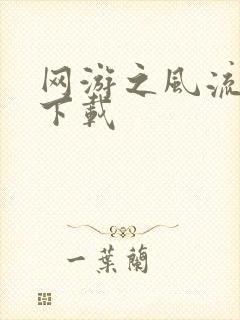 网游之风流
下载
一葉蘭